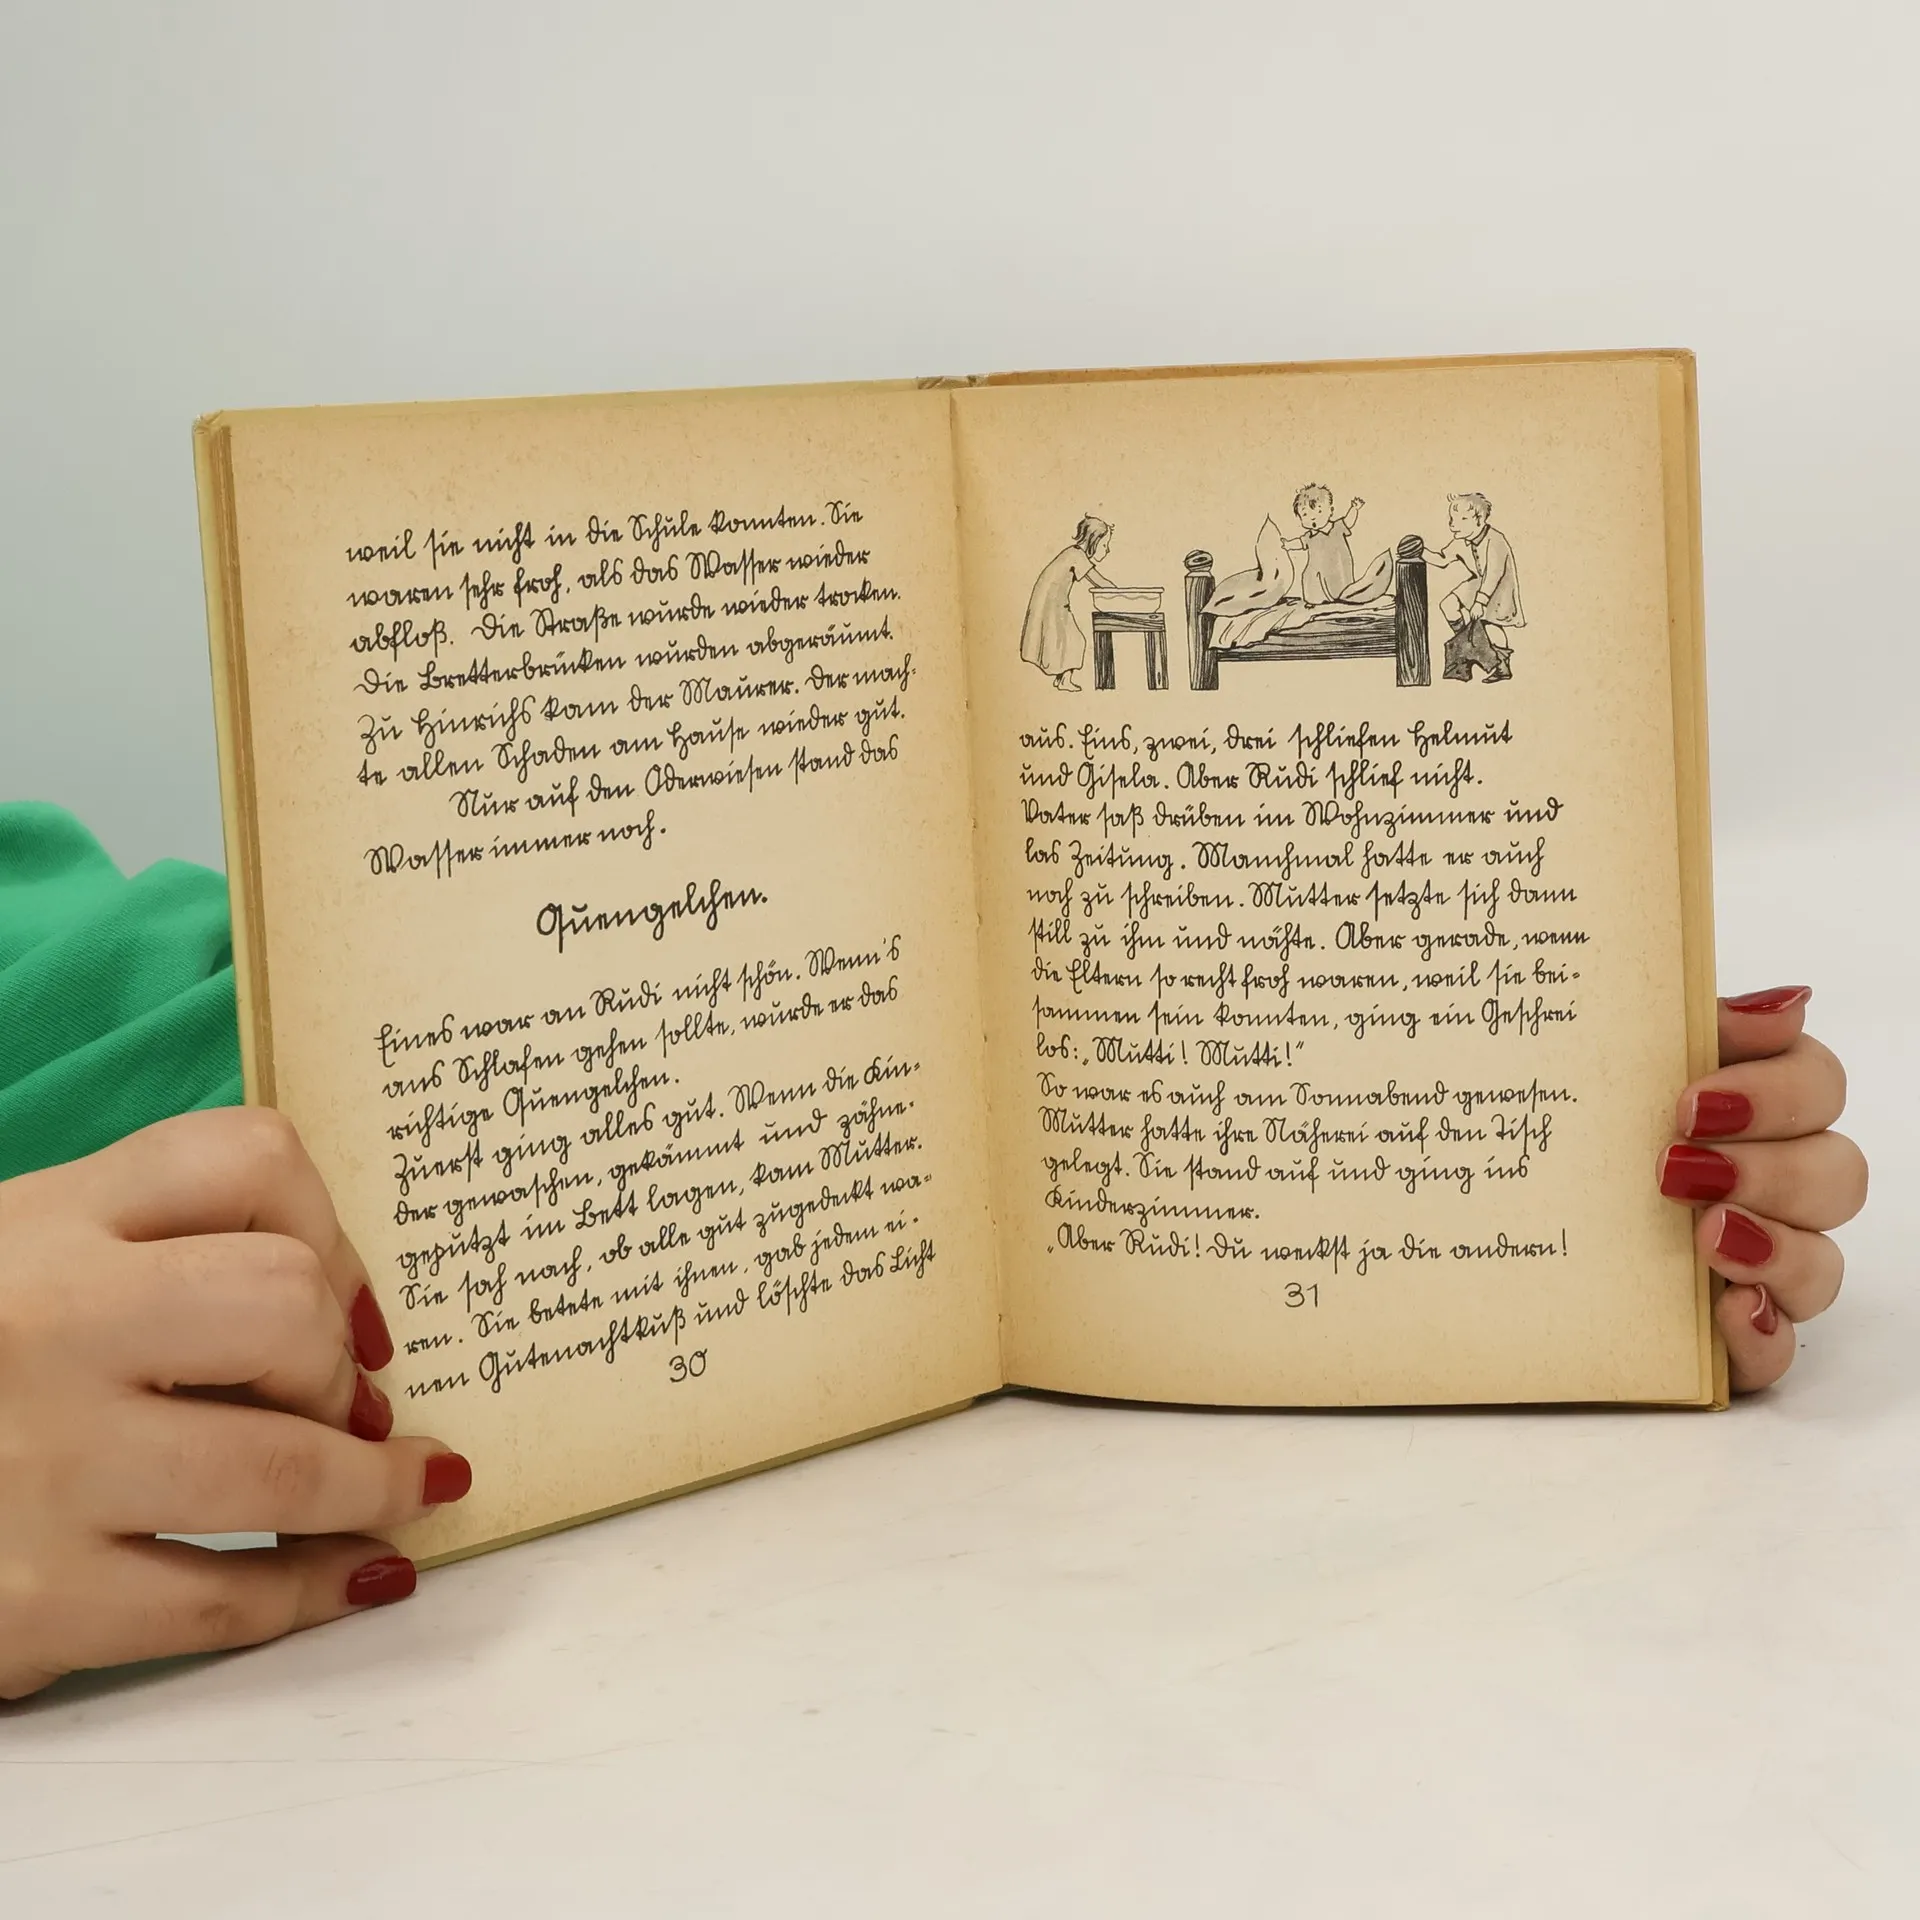 weil sie nicht in die Schule konnten. Sie
waren sehr froh, als das Wasser wieder
abfloß. Die Straße wurde wieder trocken.
Die Bretterbrücken wurden abgeräumt.
Zu Hinrichs kam der Maurer. Der mach-
te allen Schaden am Hause wieder gut.
Nur auf den Oderwiesen stand das
Wasser immer noch.
Quengelchen.
Eines war an Rudi nicht schön. Wenn's
ans Schlafen gehen sollte, wurde er das
richtige Quengelchen.
Zuerst ging alles gut. Wenn die Kin-
der gewaschen, gekämmt und zähne-
geputzt im Bett lagen, kam Mutter.
Sie sah nach, ob alle gut zugedeckt wa-
ren. Sie betete mit ihnen, gab jedem ei-
nen Gutenachtkuß und löschte das Licht
30
aus. Eins, zwei, drei schliefen Helmut
und Gisela. Aber Rudi schlief nicht.
Vater saß drüben im Wohnzimmer und
las Zeitung. Manchmal hatte er auch
noch zu schreiben. Mutter setzte sich dann
still zu ihm und nähte. Aber gerade, wenn
die Eltern so recht froh waren, weil sie bei-
sammen sein konnten, ging ein Geschrei
los: „Mutti! Mutti!"
So war es auch am Sonnabend gewesen.
Mutter hatte ihre Näherei auf den Tisch
gelegt. Sie stand auf und ging ins
Kinderzimmer.
„Aber Rudi! Du weckst ja die andern!
31